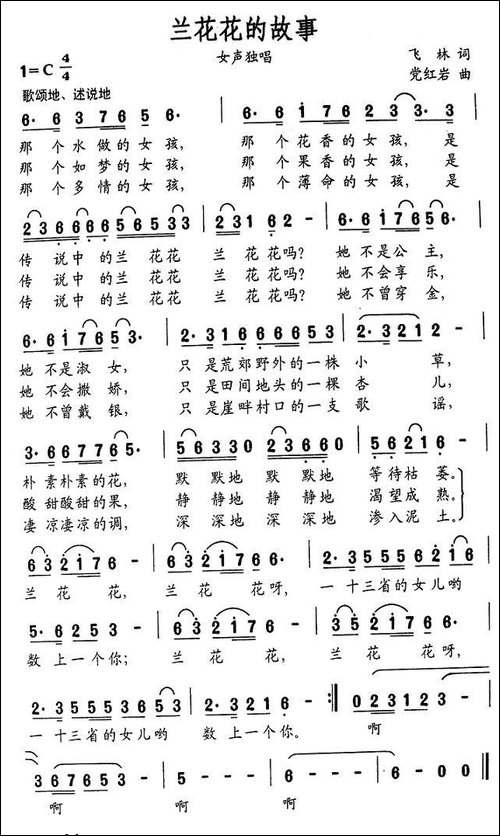 兰花花的故事
女声独唱
1=C 4/4
飞林 词
党红岩 曲
歌颂地、述说地
6· 6 3 7 6 5 6· 6· 6 1 7 6 5 6·
那个水做的女孩, 那个花香的女孩, 是
那个如梦的女孩, 那个果香的女孩, 是
那个多情的女孩, 那个薄命的女孩, 是
2 3 6 6 6 6 5 6 5 3 3 2 3 1 6 2 - 6· 6 1 7 6 5 6·
传说中的兰花花 兰花花吗? 她不是公主,
传说中的兰花花 兰花花吗? 她不会享乐,
传说中的兰花花 兰花花吗? 她不曾穿金,
6· 6 1 7 6 5 5· 2· 3 1 6 6 6 6 5 3 2· 3 2 1 2 -
她不是淑女, 只是荒郊野外的一株小草,
她不会撒娇, 只是田间地头的一棵杏儿,
她不曾戴银, 只是崖畔村口的一支歌谣,
3· 6 6 7 7 6 5· 5 6 3 3 0 2 3 6 6 0 5 6 2 1 6 -
朴素朴素的花, 默默地默默地 等待枯萎。
酸甜酸甜的果, 静静地静静地 渴望成熟。
凄凉凄凉的调, 深深地深深地 渗入泥土。
6 3 2 1 7 6 - 6 3 2 1 7 6· 3· 5 5 5 5 6 2 1 6
兰花花, 兰花花呀, 一十三省的女儿哟
5· 6 2 5 3 - 6 3 2 1 7 6 - 3 5 2 1 7 6·
数上一个你; 兰花花, 兰花花呀,
2· 3 5 5 5 5 3 5 3 2· 3 2 1 6 - :‖ 0 2 3 1 2 3
一十三省的女儿哟 数上一个你。 啊
3 6 7 6 5 3 - 5 - - - 6 - - - 6 - 0 0
啊 啊 啊